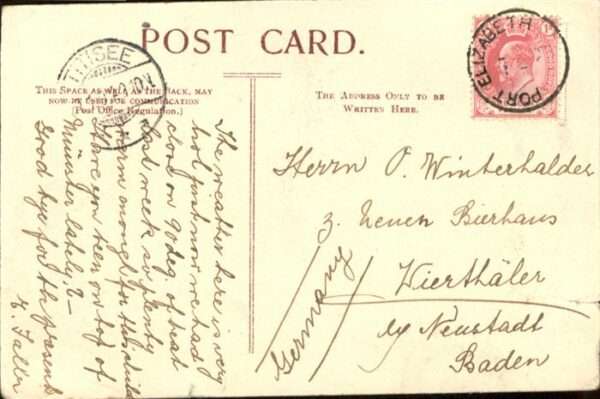 POST CARD.
THIS SPACE AS WELL AS THE BACK, MAY
NOW BE USED FOR COMMUNICATION
(Post Office Regulation.)
THE ADDRESS ONLY TO BE
WRITTEN HERE.
TITISEE
PORT ELIZABETH
The weather here is very
hot just now we had
close on 90 deg. of heat
last week so plenty
warm enough for this
Have you been on top of
Münster lately? —
Good bye for the present
Herrn O. Winterhalder
z. neuen Bierhaus
Vierthäler
by Neustadt
Baden
Germany